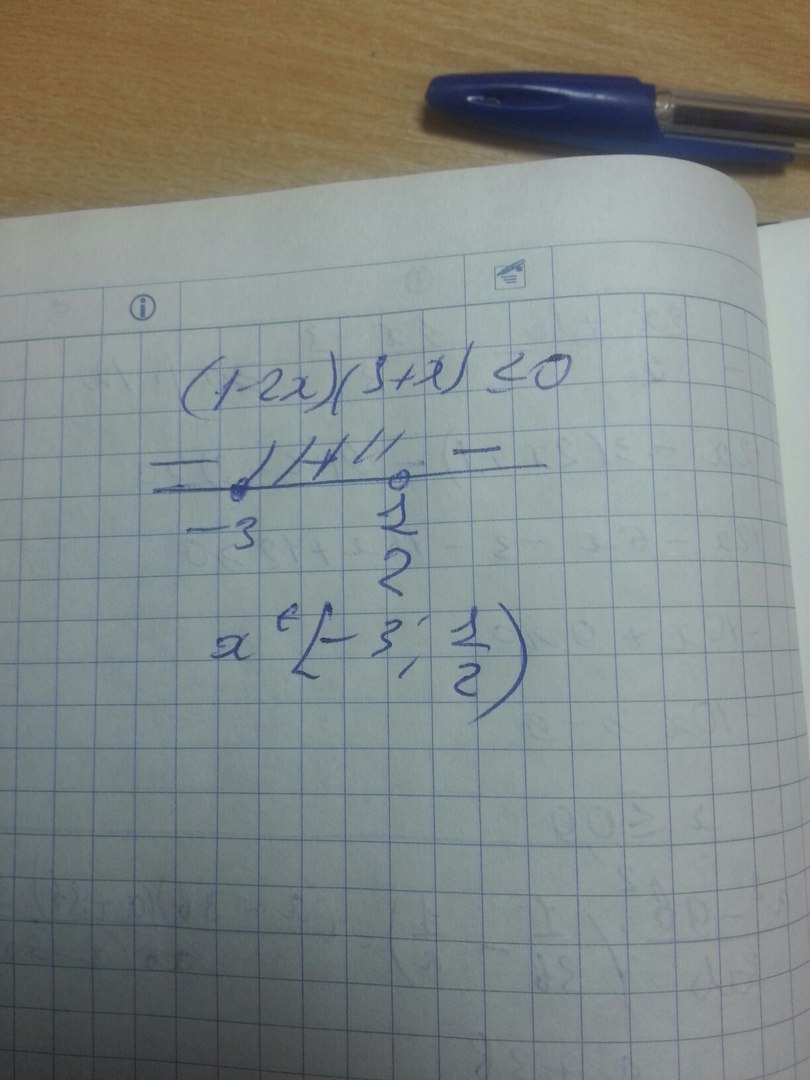 (1-2x)(3+x) ≤ 0
− + −
-3 1/2
x ∈ [-3; 1/2)